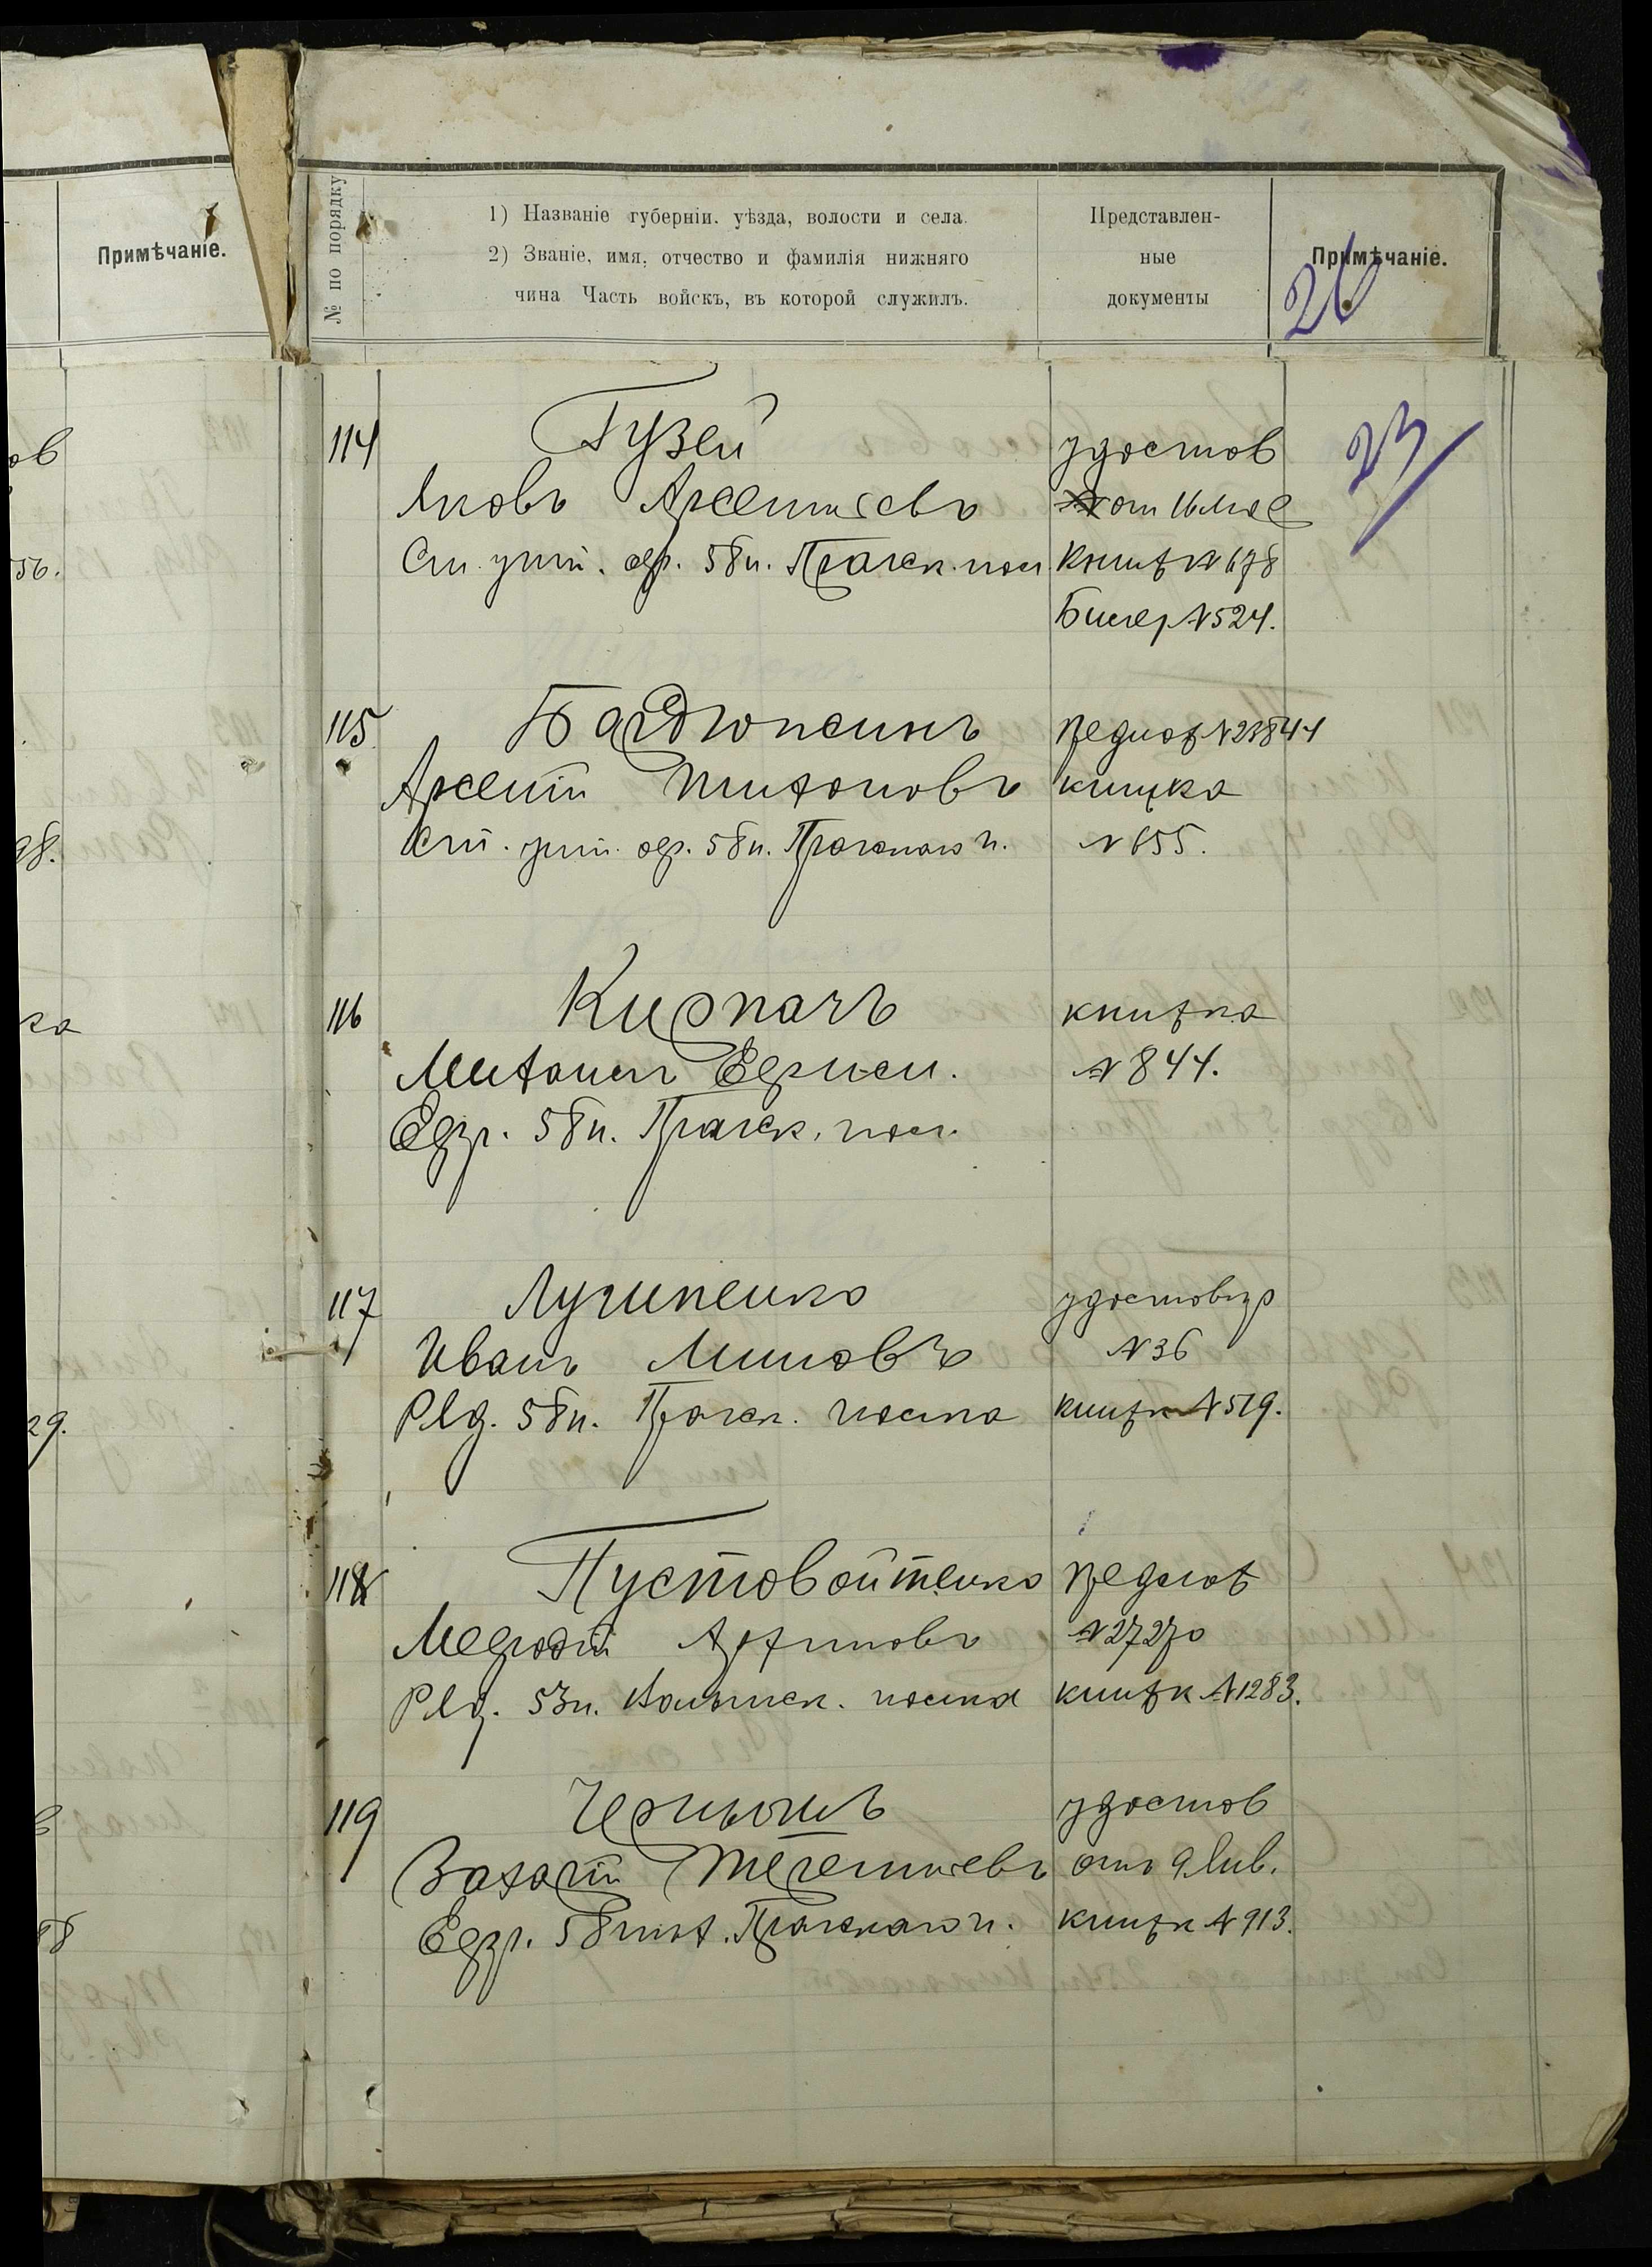 Примѣчаніе.
ов
56.
98.
ка
29.
88
№ по порядку
1) Названіе губерніи. уѣзда, волости и села.
2) Званіе, имя, отчество и фамилія нижняго
чина Часть войскъ, въ которой служилъ.
Представлен-
ные
документы
Примѣчаніе.
26
23
114
Гузей
Яковъ Арсентьевъ
Ст. унт. оф. 58 п. Пражск. пол
удостов
от 16 июл
Книжк № 678
Билет № 524.
115
Арсентій Тихоновъ
Ст. унт. оф. 58 п. Пражскаго п.
предлож № 23844
книжка
№ 655.
116
Кирпачъ
Михаилъ
Ефр. 58 п. Пражск. пол.
книжка
№ 844.
117
Иванъ Миновъ
Ряд. 58 п. Пражск. полка
удостовер
№ 36
книжк № 519.
118
Пустовойтенко
Мефодій
Ряд. 53 п. Волынск. полка
предлож
№ 27270
книжк № 1283.
119
Чернышъ
Захарій Терентьевъ
Ефр. 58 пех. Пражскаго п.
удостов
отъ 9 янв.
книжк № 913.